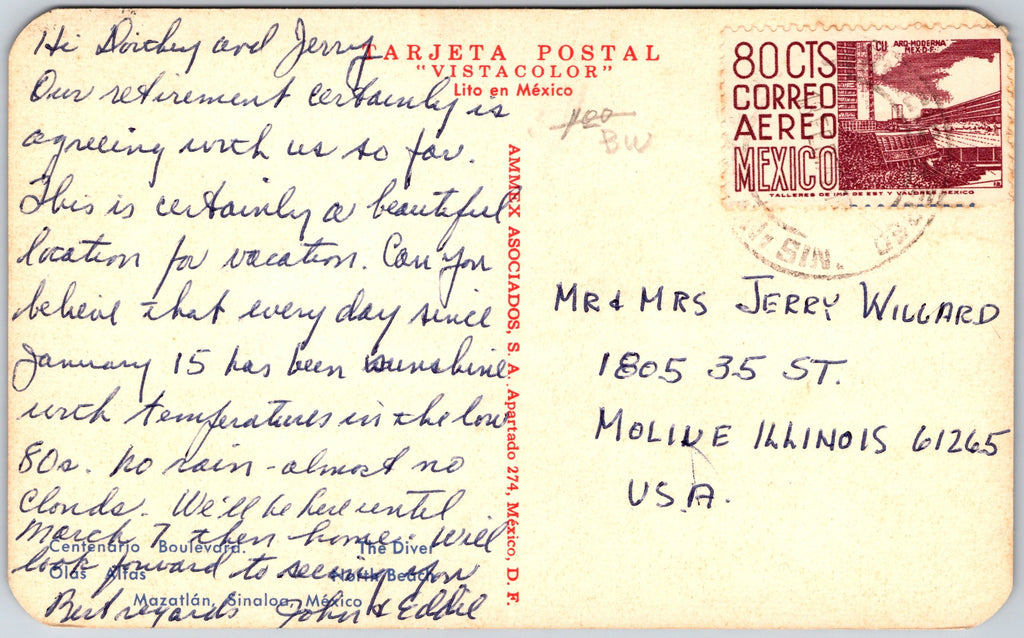 Hi Dorthey and Jerry
Our retirement certainly is
agreeing with us so far.
This is certainly a beautiful
location for vacation. Can you
believe that every day since
January 15 has been sunshine
with temperatures in the low
80s. No rain - almost no
clouds. We'll be here until
March 7 then home. Will
look forward to seeing you
Best regards John & Eddie
Centenario Boulevard. The Diver
Olas Altas North Beach
Mazatlán, Sinaloa, México
TARJETA POSTAL
"VISTACOLOR"
Lito en México
1.00
BW
AMMEX ASOCIADOS, S. A. Apartado 274, México, D. F.
80 CTS
CORREO
AEREO
MEXICO
CU ARQ-MODERNA
MEX-D-F.
TALLERES DE IMP DE EST Y VALORES MEXICO
SIN.
MR & MRS JERRY WILLARD
1805 35 ST.
MOLINE ILLINOIS 61265
USA.